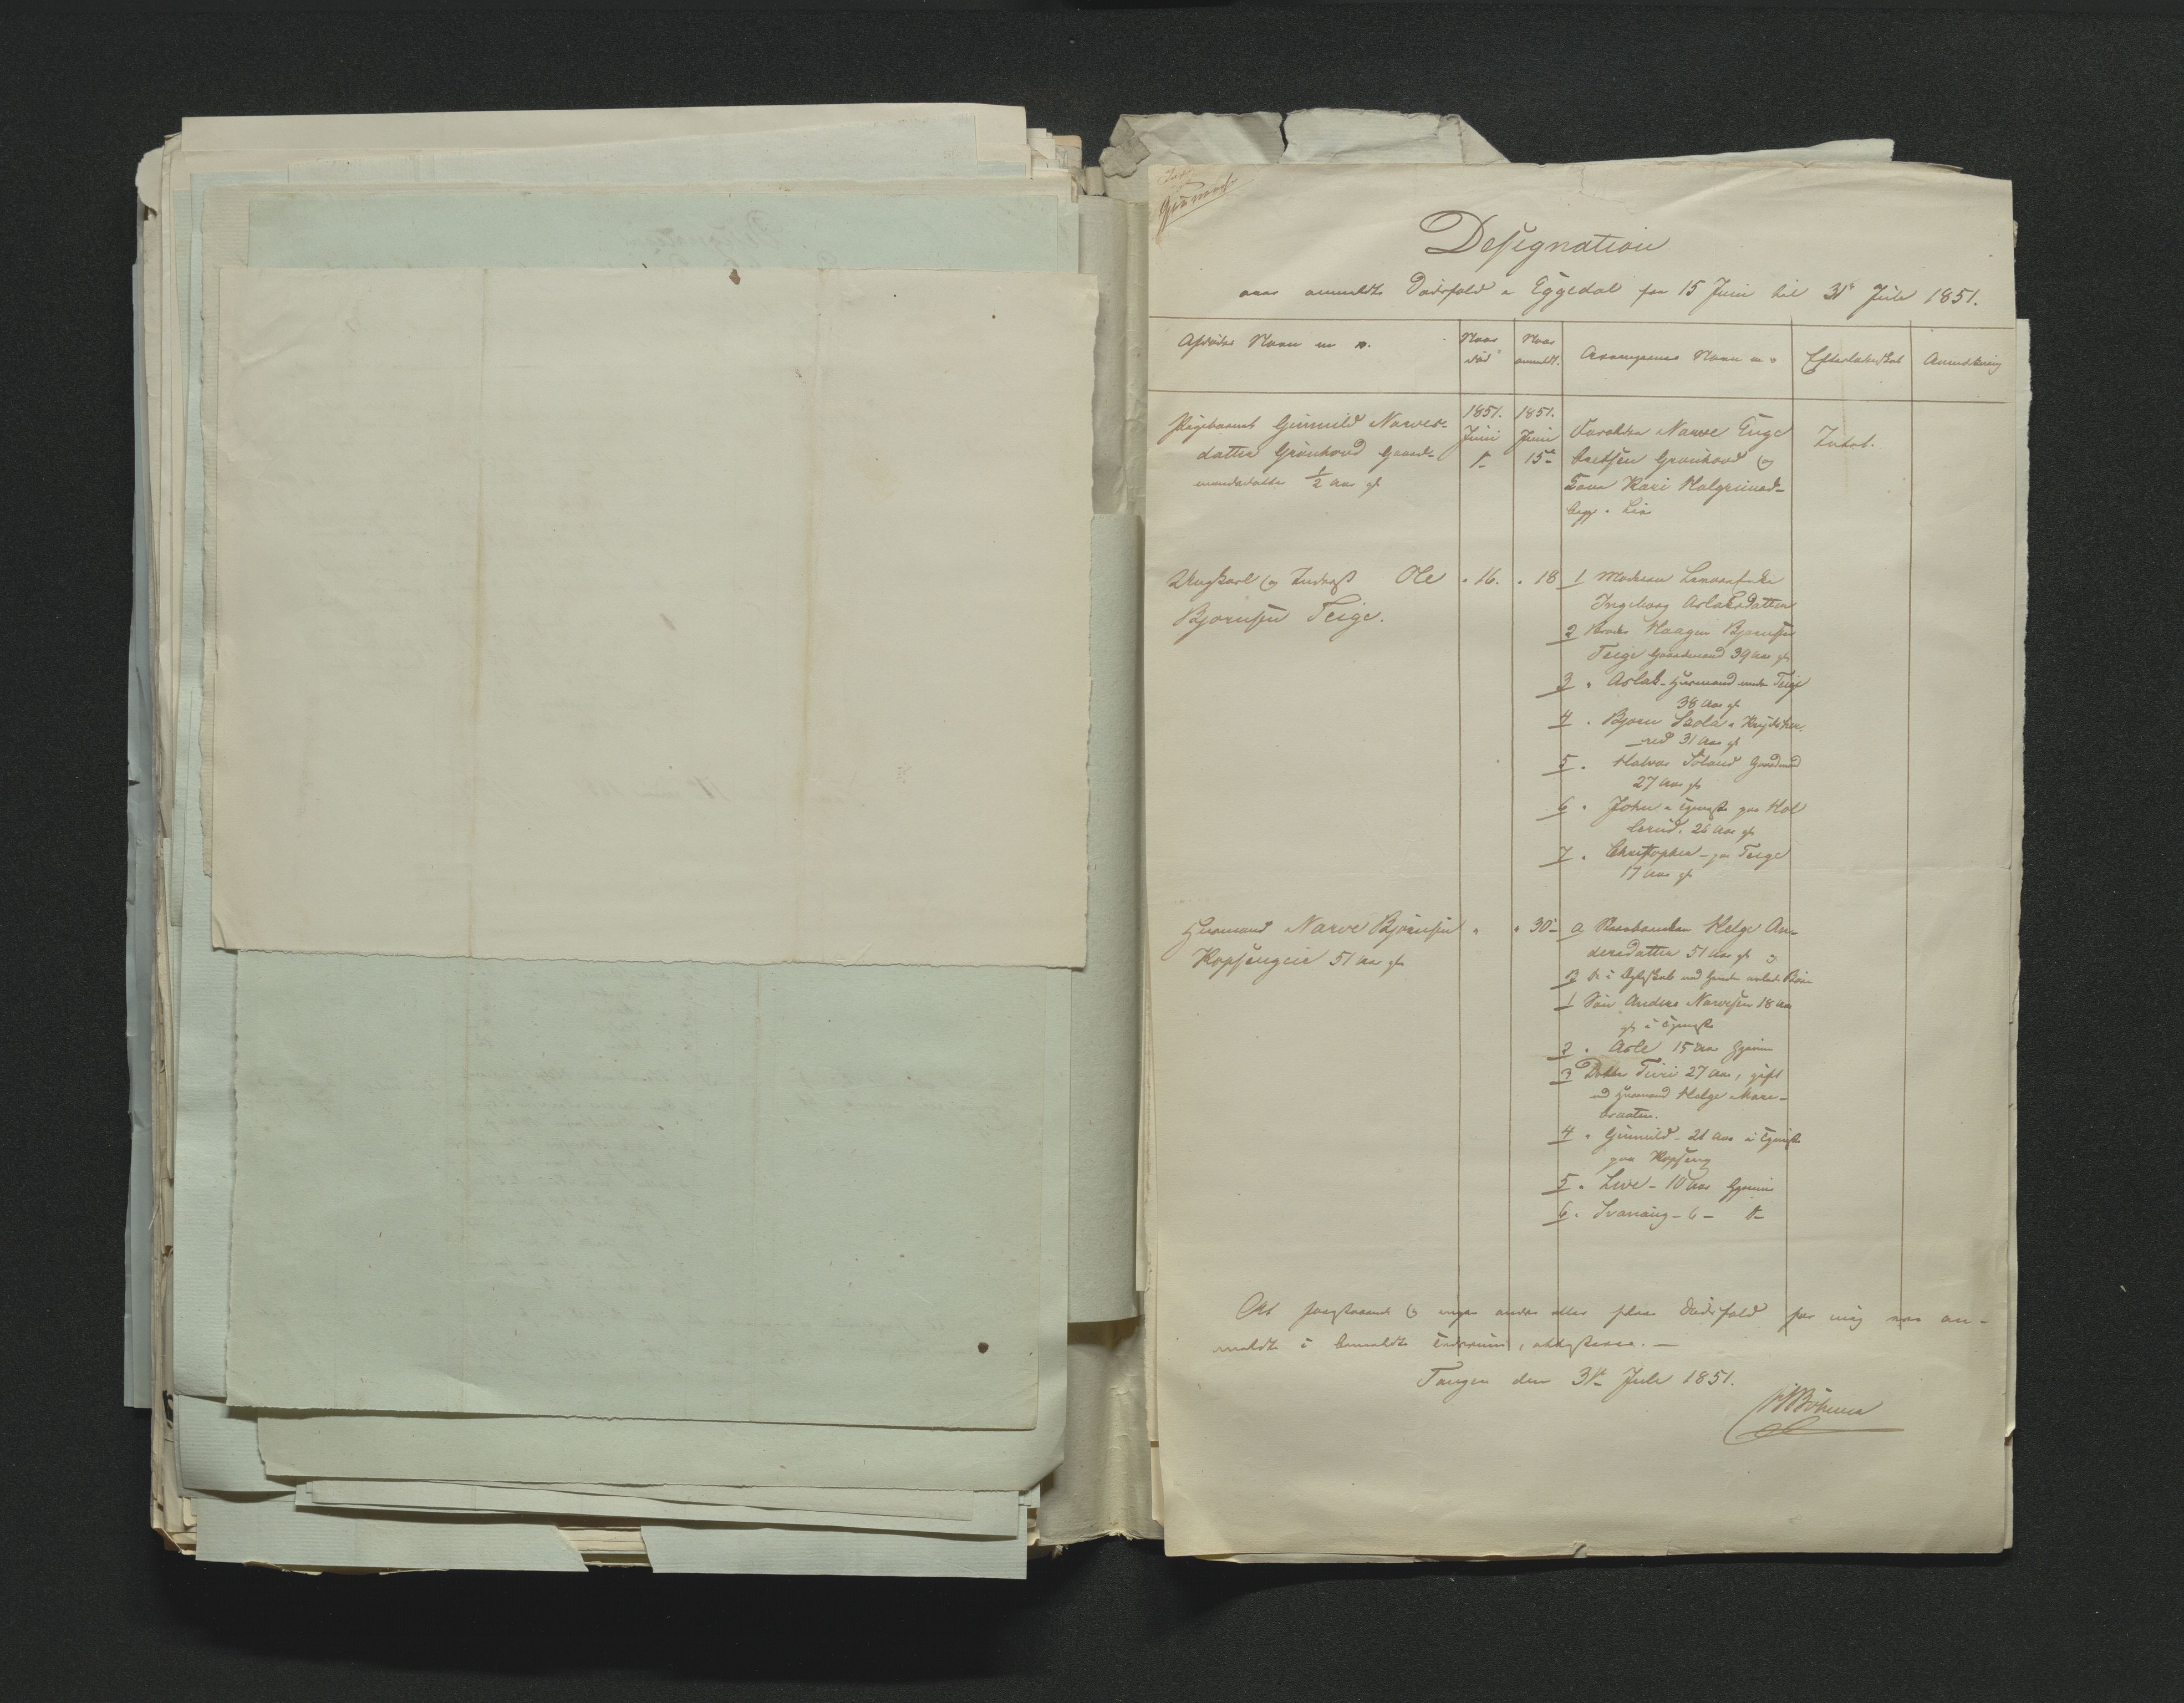 Designation
over anmeldte Dødsfald i Eggedal fra 15 Juni til 31te Juli 1851.
Afdødes Navn m v.
Naar død
Naar anmeldt.
Arvingernes Navn m v
Efterladenskab
Anmerkning
Pigebarnet Gunnild Narves-
datter Grønhovd Gaard-
mandsdatter 1/2 Aar gl
1851. Juni
1851. Juni 15de
Forældre Narve Enge
bretsen Grønhovd og
Kone Kari Halgrimsd-
begge i Live
Intet.
Ungkarl og Inderst Ole
Bjørnsen Teige.
" 16.
" 18
1 Moderen
Ingeborg Aslaksdatter
2 Broder Haagen Bjørnsen
Teige Gaardmand 39 Aar gl
3 " Aslak - Huusmand under Teige
38 Aar gl
4 " Bjørn i Krydsher-
red 31 Aar gl
5 " Halvor Gaardmand
27 Aar gl
6 " John i Tjeneste paa Hol
berud. 26 Aar gl
7 " Christopher - paa Teige
17 Aar gl
Huusmand Narve Bjørnsen
Kopsengeie 51 Aar gl
"
" 30-
a Helge An-
dersdatter 51 Aar gl og
B De i Ægteskab med hende avlede Børn
1 Søn Anders Narvesen 18 Aar
gl i Tjeneste
2 " Asle 15 Aar hjemme
3 Datter Turi 27 Aar, gift
med Huusmand Helge
braaten.
4 " Gunnild - 21 Aar i Tjeneste
paa Kopseng
5 " Live - 10 Aar hjemme
6 " - 6 -
At foregstaaende og ingen andre eller flere Dødsfald for mig ere an-
meldte i bemeldte Tidsrum, attesteres. -
Tangen den 31te Juli 1851.